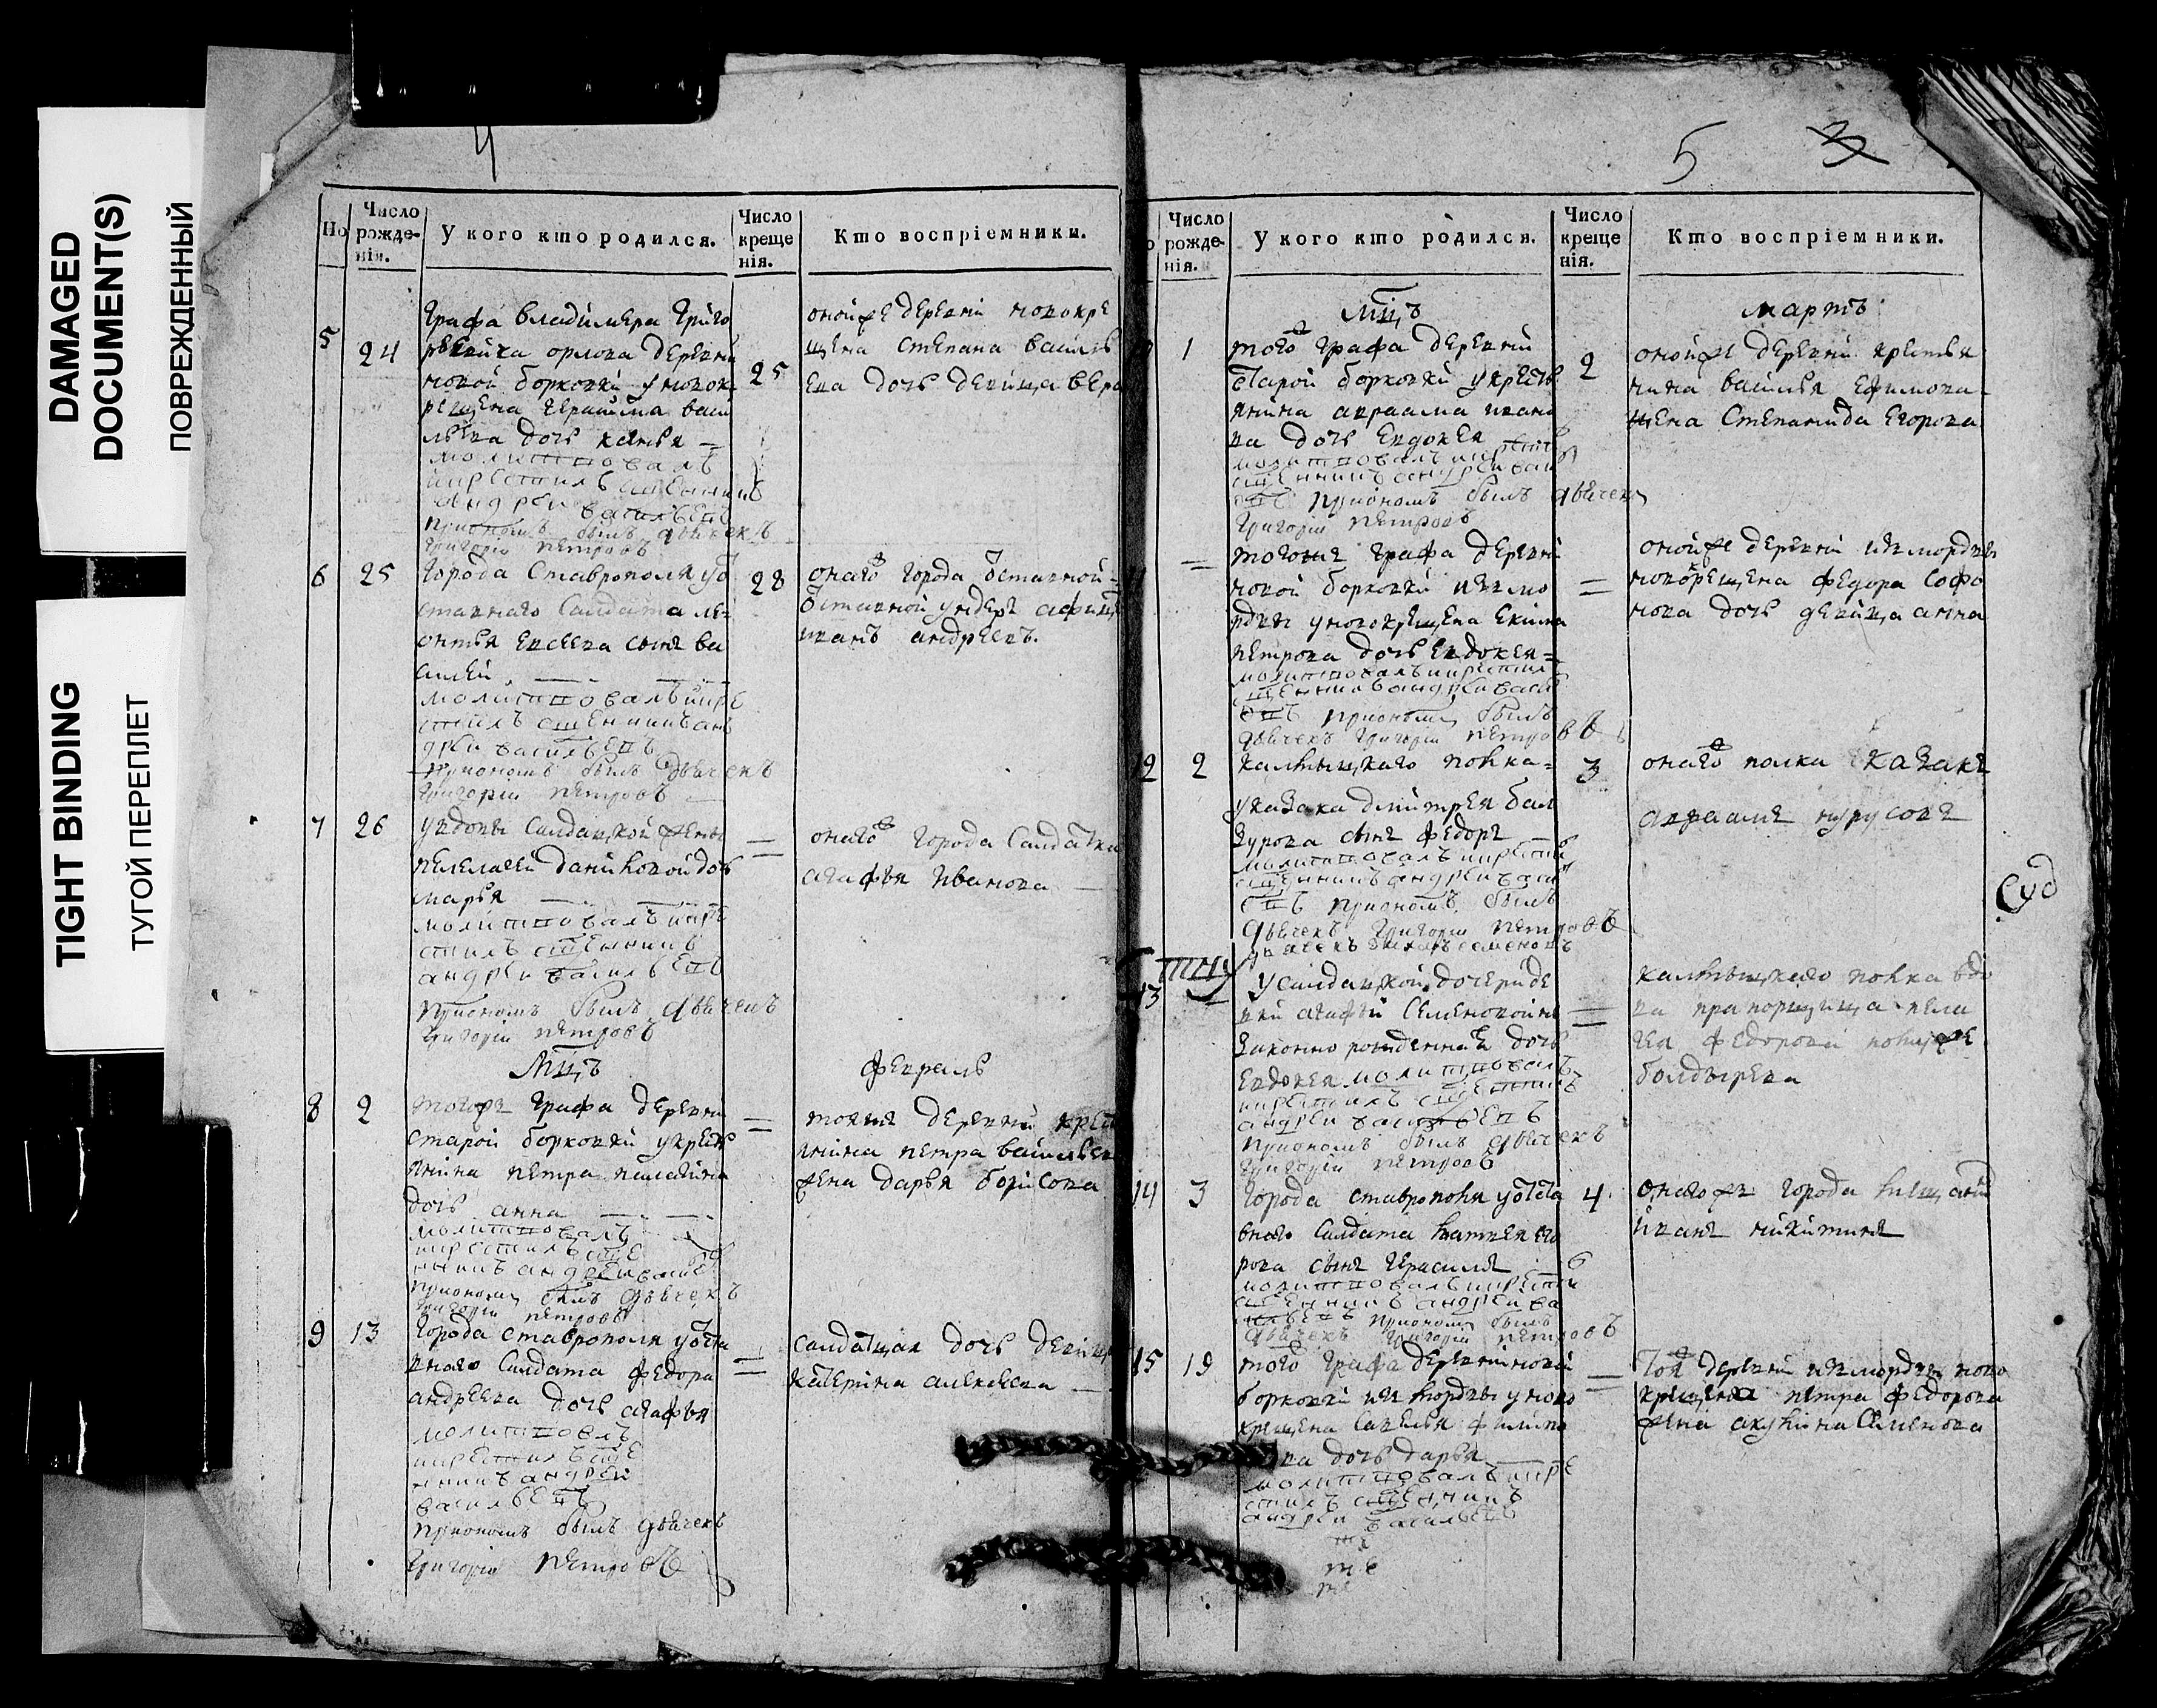 DAMAGED
DOCUMENT(S)
ПОВРЕЖДЕННЫЙ
TIGHT BINDING
ТУГОЙ ПЕРЕПЛЕТ
4
Но
Число рожденія.
У кого кто родился.
Число крещенія.
Кто воспріемники.
5
24
графа владимера григо
орлова деревни
новой борковки у новок
рещена герасима васи
льева дочь
молитвовалъ
и крестилъ сщенникъ
андреи василъевъ
при ономъ былъ дьячекъ
григорiи петровъ
25
оной же деревни новокре
щена степана василь
ева дочь девица вера
6
25
города ставрополя уо
ставнаго салдата ле
онтья евсеева сынъ ва
силей
молитвовалъ и кре
стилъ сщенникъ ан
дреи василъевъ
при ономъ былъ дьячекъ
григорiи петровъ
28
онаго города
отставной ундеръ афицеръ
иванъ андреевъ.
7
26
у вдовы салдацкой жены
пелагей даниловой дочь
марья
молитвовалъ и кре
стилъ сщенникъ
андреи василъевъ
при ономъ былъ дьячекъ
григорiи петровъ
=
онаго города салдатка
агафья иванова
Мцъ
февраль
8
2
тогожъ графа деревни
старой борковки у кресть
янина петра
дочь анна
молитвовалъ
и крестилъ сще
нникъ андреи васил
при ономъ былъ дьячекъ
григорiи петровъ
=
тояжъ деревни крест
янина петра васильева
жена дарья борисова
9
13
города ставрополя уотста
вного салдата федора
андреева дочь агафья
молитвовалъ
и крестилъ сще
нникъ андреи
василъевъ
при ономъ былъ дьячекъ
григорiи петровъ
=
салдацкая дочь девица
катерина алексеева
5
3
Число рожденія.
У кого кто родился.
Число крещенія.
Кто воспріемники.
Мцъ
мартъ
1
того графа деревни
старой борковки у кресть
янина авраама ивано
ва дочь евдокея
молитвовалъ и крести
сщенникъ андреи васи
при ономъ былъ дьячекъ
григорiи петровъ
2
оной же деревни крестья
нина василья ефимова
жена степанида егорова
=
тогожъ графа деревни
новой борковки из мо
рдвы у новокрещена екима
петрова дочь евдокея
молитвовалъ и крестил
сщенникъ андреи васи
при ономъ былъ
дьячекъ григорiи петровъ
=
оной же деревни из мордвы
новокрещена федора софо
нова дочь девица анна
12
2
калмыцкаго полка
у казака дмитрея бал
зурова сынъ федоръ
молитвовалъ и крести
сщенникъ андреи васи
при ономъ былъ
дьячекъ григорiи петровъ
3
онаго полка казакъ
авраамъ
Суд
13
=
у салдацкой дочери де
вки агафьи семеновой не
законно рожденная дочь
евдокея молитвовалъ
и крестилъ сщенникъ
андреи василъевъ
при ономъ былъ дьячекъ
григорiи петровъ
=
калмыцкаго полка вдо
ва прапорщица пела
гея федорова
болдырева
14
3
города ставрополя уотста
вного салдата матвея его
рова сынъ герасимъ
молитвовалъ и крести
сщенникъ андреи ва
силъевъ при ономъ былъ
дьячекъ григорiи петровъ
4
онагожъ города
иванъ никитинъ
15
19
того графа деревни новой
борковки из мордвы у ново
крещена савелья филипо
ва дочь дарья
молитвовалъ и кре
стилъ сщенникъ
андреи василъевъ
=
той деревни из мордвы ново
крещена петра федорова
жена акулина семенова